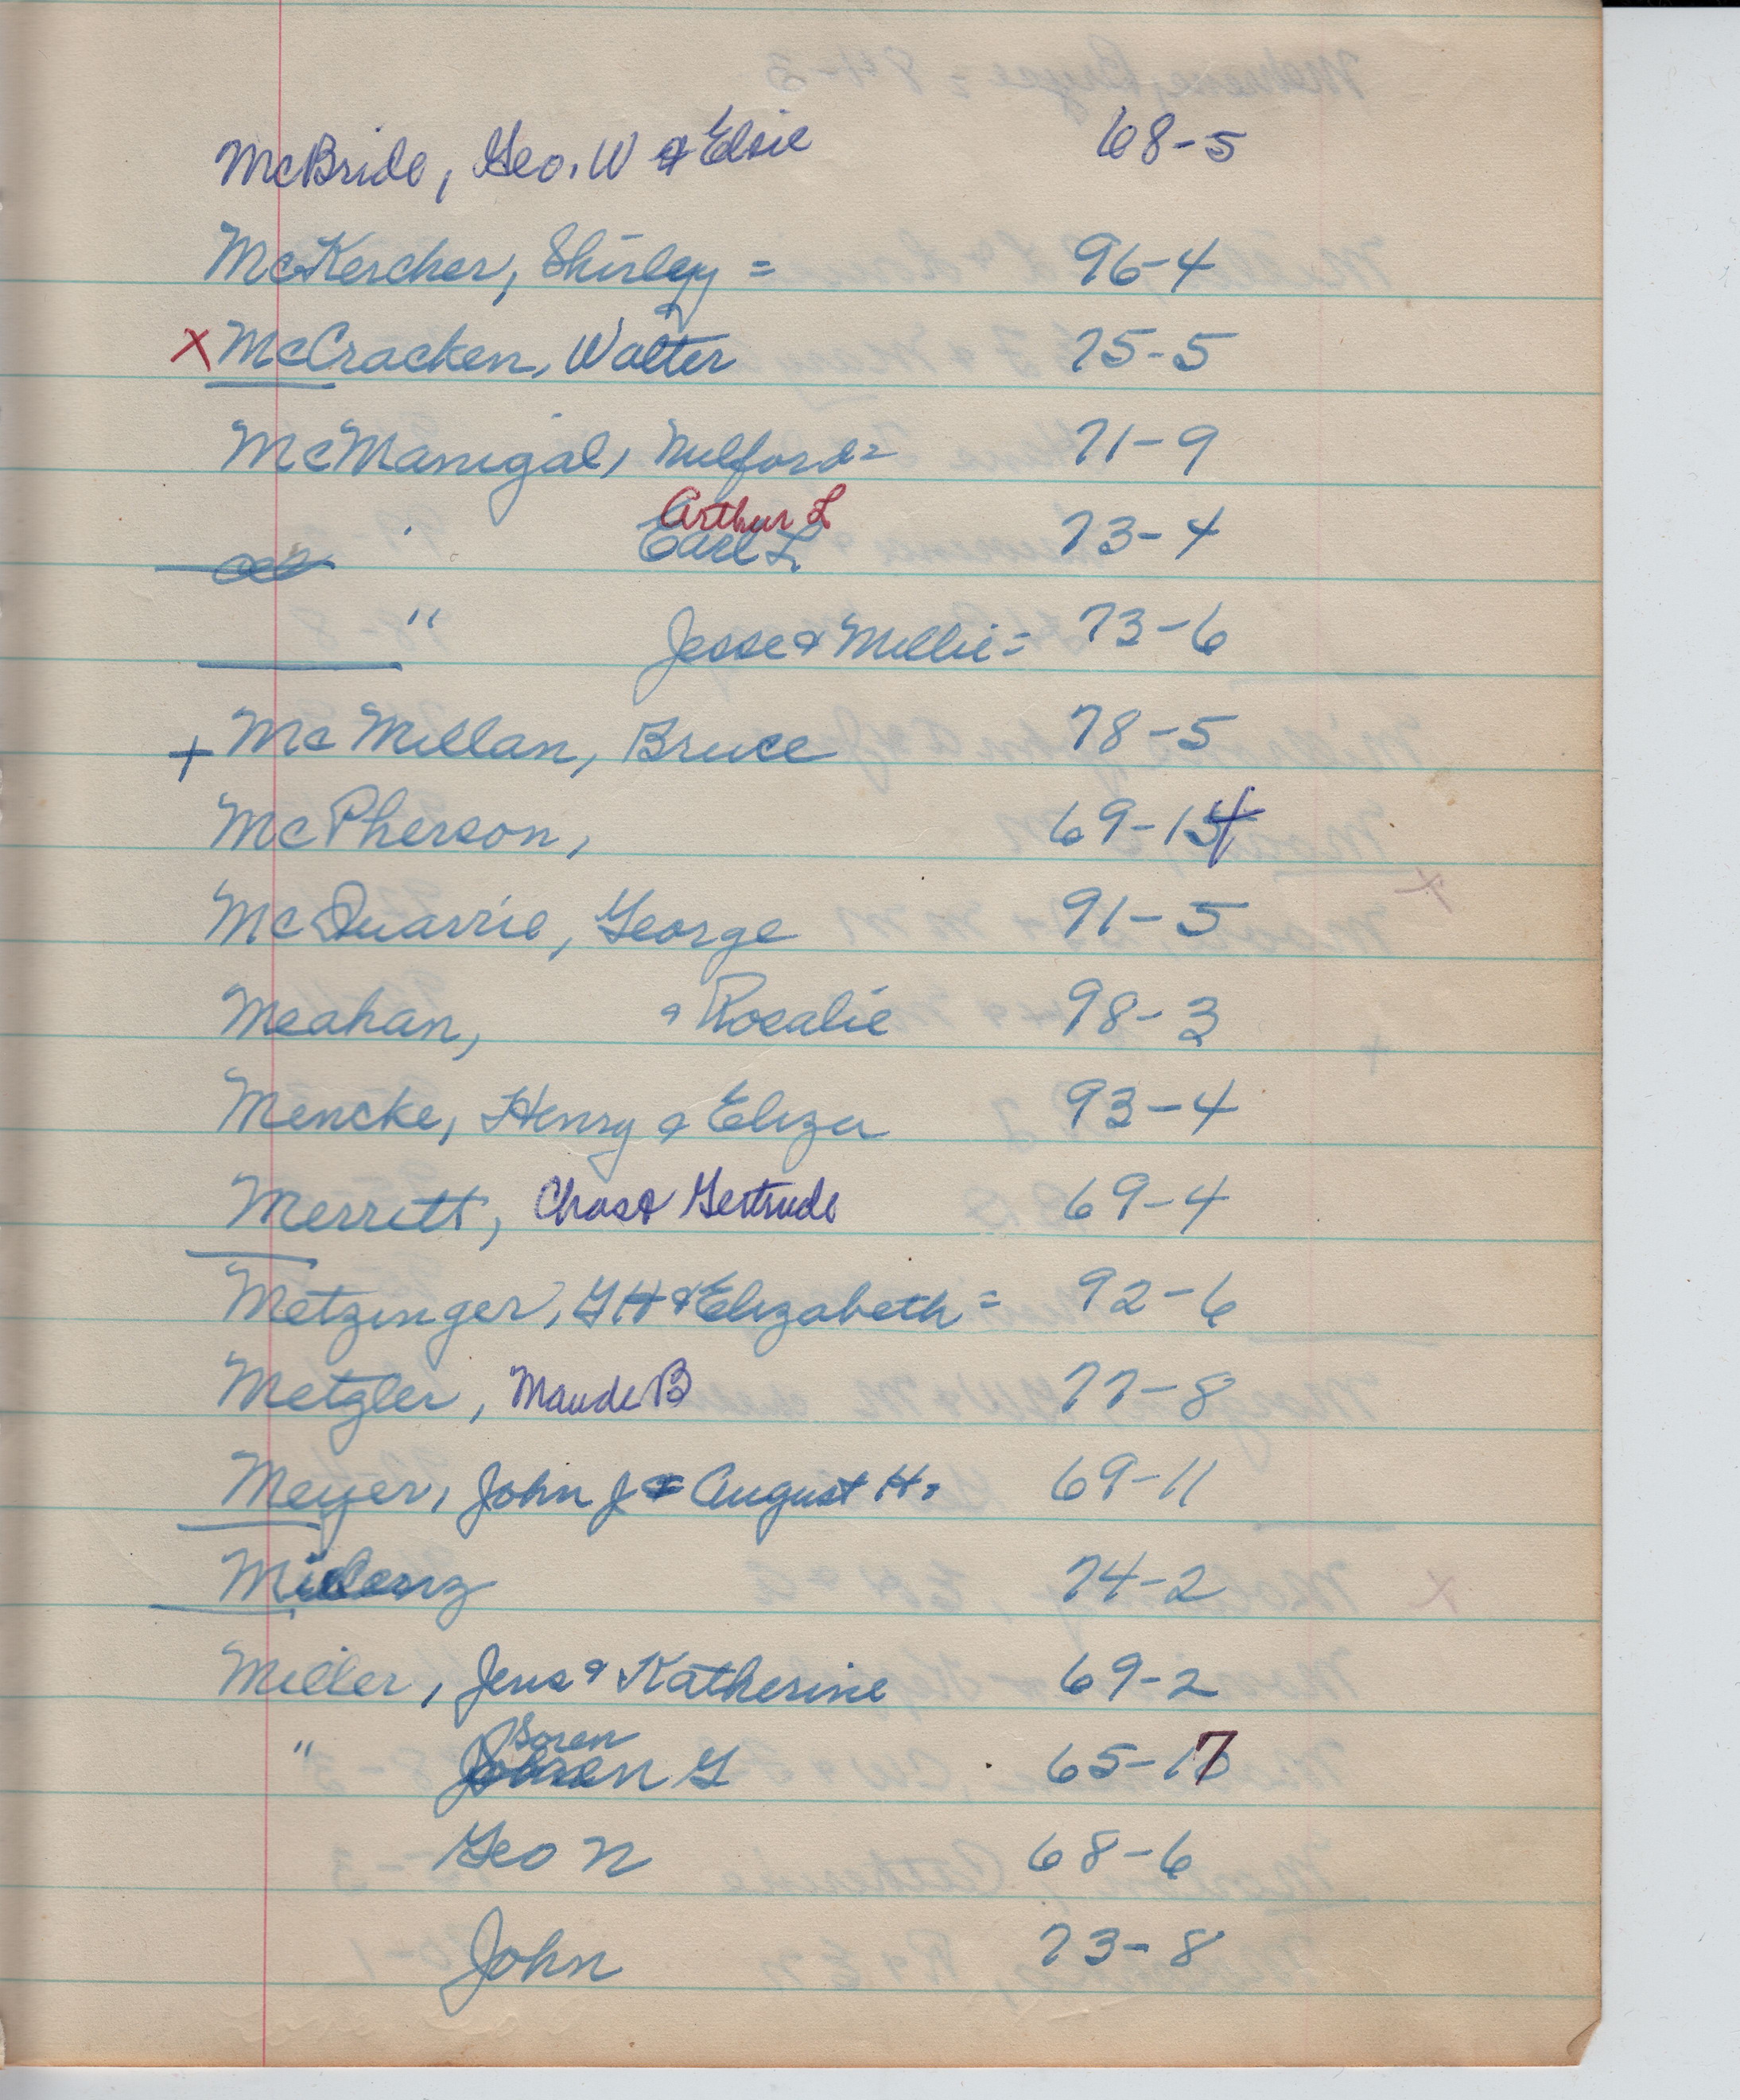 McBride, Geo. W & Elsie 68-5
McKercher, Shirley = 96-4
X McCracken, Walter 75-5
McManigal, Milford = 71-9
Arthur L
" Earl L. 73-4
" Jesse & Millie = 73-6
+ McMillan, Bruce 78-5
McPherson, 69-14
McQuarrie, George 91-5
Meahan, & Rosalie 98-3
Mencke, Henry & Eliza 93-4
Merritt, Chas & Gertrude 69-4
Metzinger, G H & Elizabeth = 92-6
Metzler, Maude B 77-8
Meyer, John J & August H. 69-11
74-2
Miller, Jens & Katherine 69-2
Soren
" G 65-17
Geo N 68-6
John 73-8